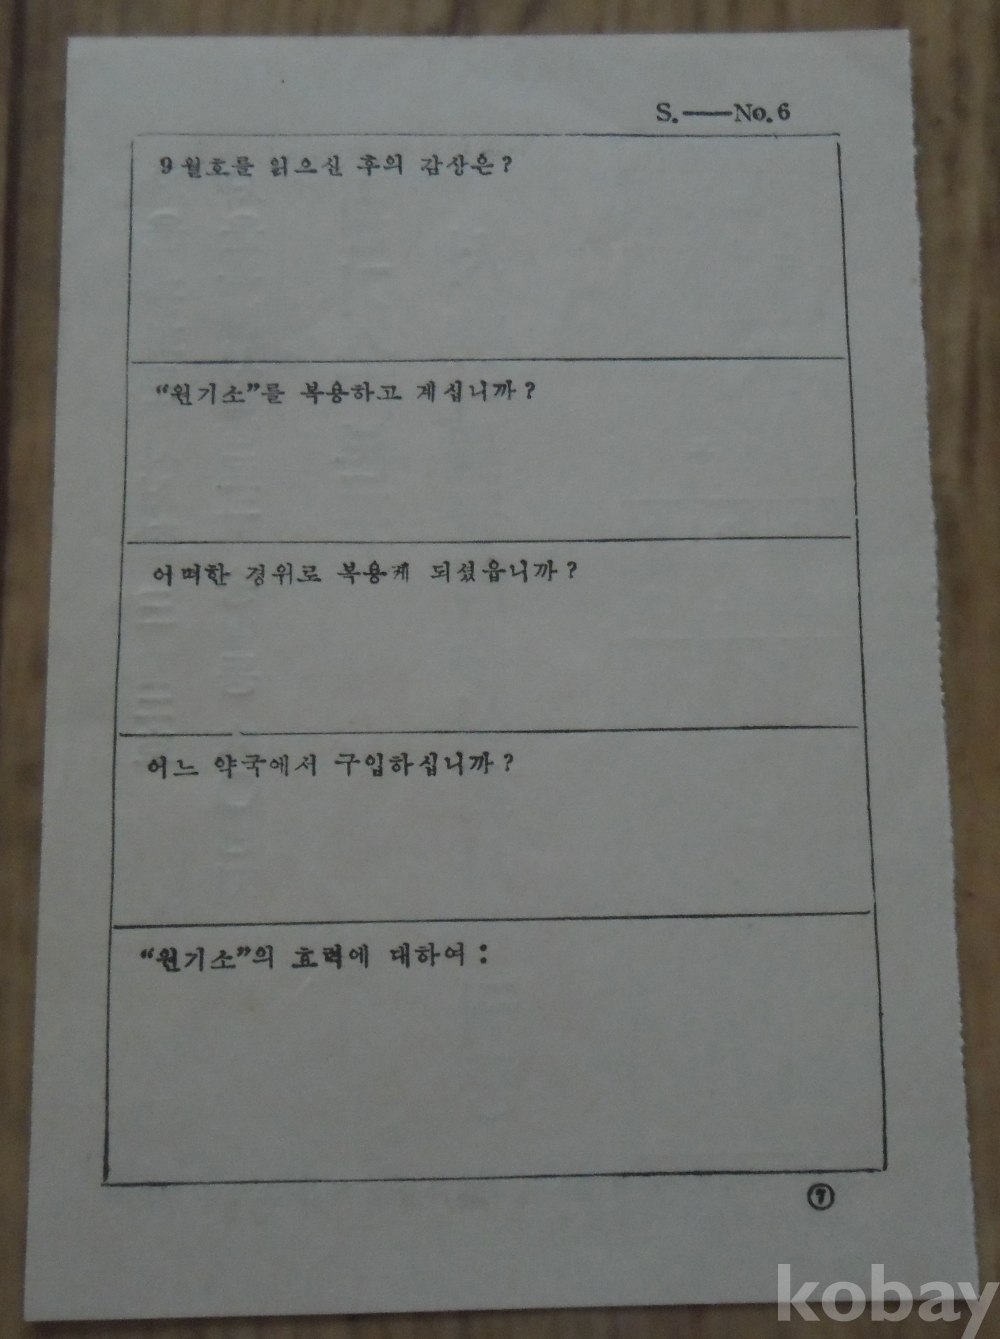 S.——No.6
9월호를 읽으신 후의 감상은?
“원기소”를 복용하고 계십니까?
어떠한 경위로 복용케 되셨읍니까?
어느 약국에서 구입하십니까?
“원기소”의 효력에 대하여:
⑦
kobay